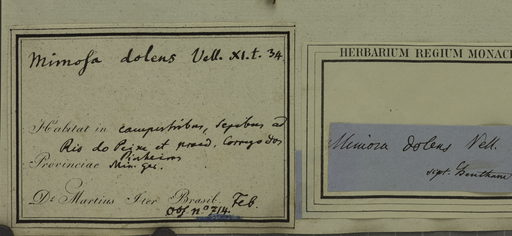 Mimosa dolens Vell. XI. t. 34.
Habitat in campestribus, sepibus ad
Rio do Peixe et praed. Corrego dos
Pinheiros
Provinciae Min. ger.
Dr Martius Iter Brasil. Feb.
Obs. no 714.
HERBARIUM REGIUM MONAC
Mimosa dolens Vell.
dipt. Bentham